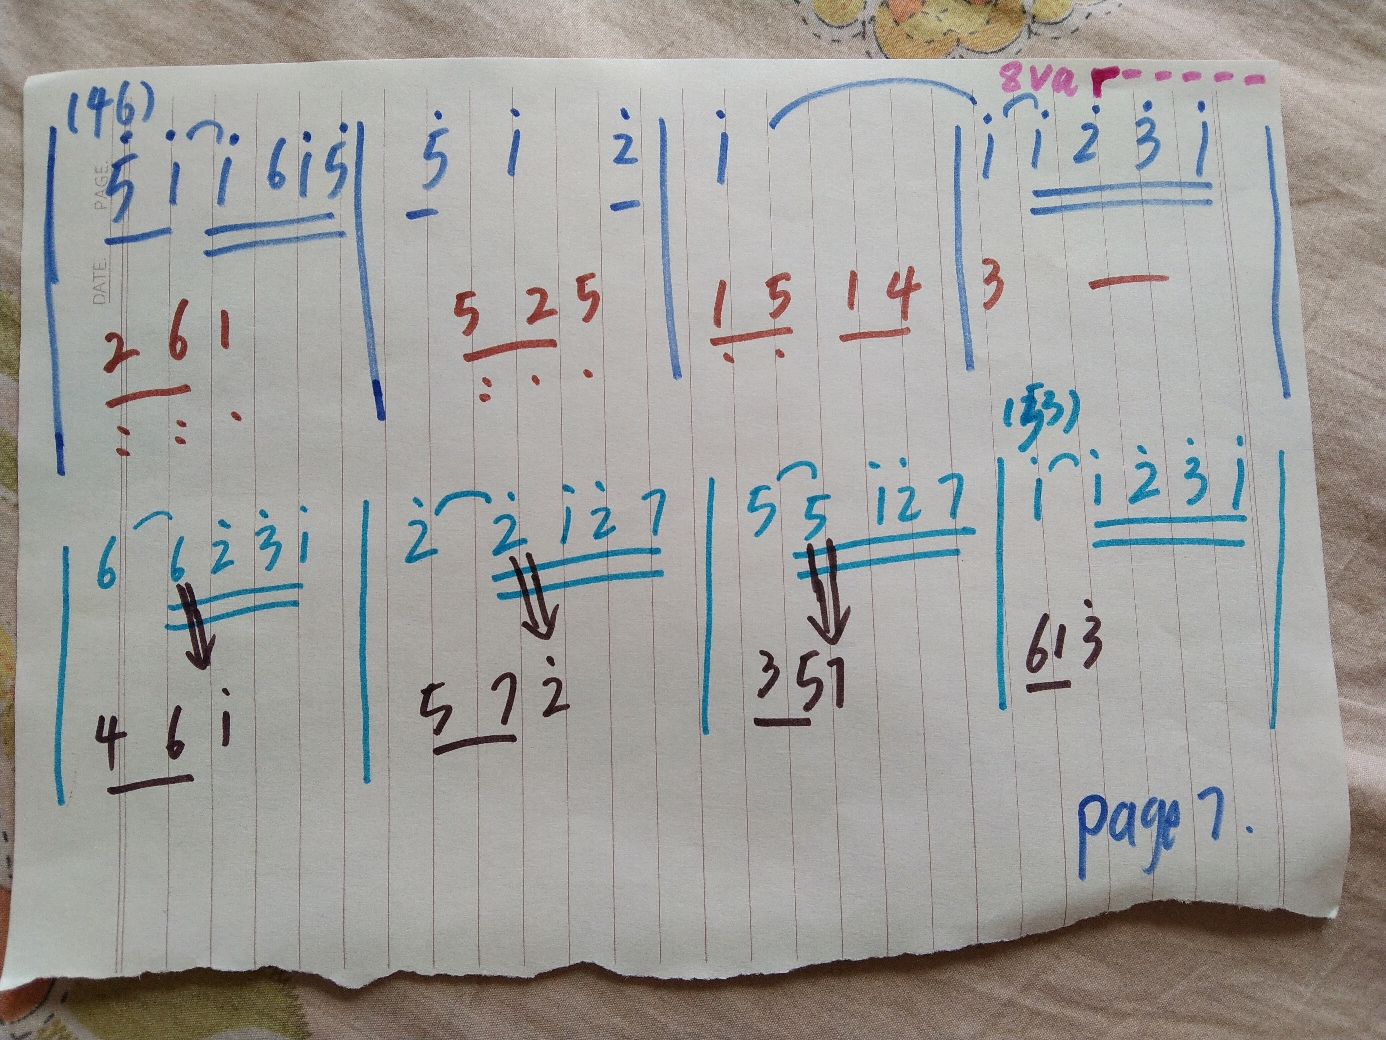 8va
(46)
5̇ i i 6 i 5̇ | 5̇ i 2̇ | i | i i 2̇ 3̇ i
2 6 1 5 2 5 1 5 1 4 3 —
DATE PAGE
(53)
6 6 2̇ 3̇ i | 2̇ 2̇ i 2̇ 7 | 5 5 i 2̇ 7 | i i 2̇ 3̇ i
4 6 i 5 7 2̇ 3 5 7 6 1 3̇
page 7.